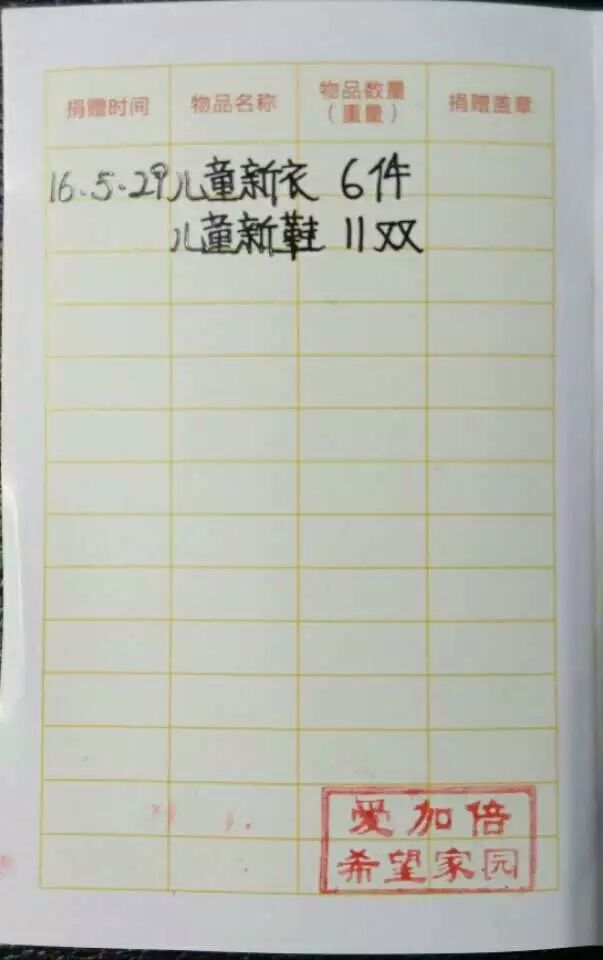 捐赠时间 物品名称 物品数量（重量） 捐赠盖章
16.5.29 儿童新衣 6件
儿童新鞋 11双
爱加倍
希望家园